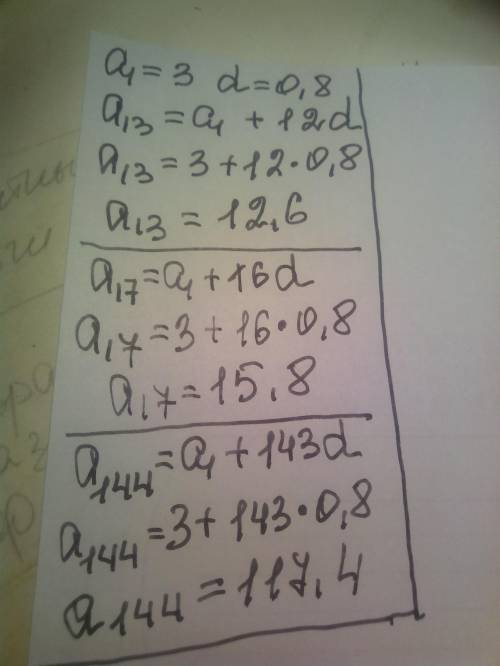 a₁ = 3 d = 0,8
a₁₃ = a₁ + 12d
a₁₃ = 3 + 12 · 0,8
a₁₃ = 12,6
a₁₇ = a₁ + 16d
a₁₇ = 3 + 16 · 0,8
a₁₇ = 15,8
a₁₄₄ = a₁ + 143d
a₁₄₄ = 3 + 143 · 0,8
a₁₄₄ = 117,4